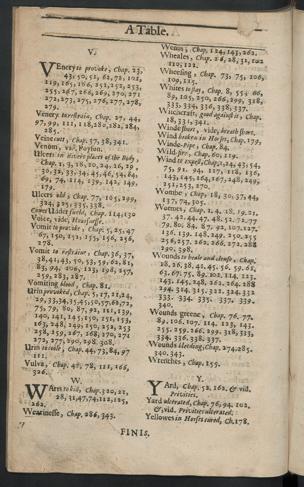 A Table.
V.
VEnery to provoke, Chap. 23,
43, 50, 52, 62, 72, 102,
119, 165, 186, 251, 252, 253,
255, 267, 268, 269, 270, 271
272, 273, 275, 276, 277, 278,
279.
Venery to restrain, Chap. 27, 44,
97, 99, 111, 118, 280, 282, 284,
285.
Veins cutt, Chap. 37, 38, 341.
Venom, vid. Poyson.
Ulcers in divers places of the Body,
Chap. 2, 9, 18, 20, 24, 26, 29,
Ulcers old; Chap. 77, 105, 299,
324, 325, 335, 338.
Chap. 114, 130
Voice, vide, Hoarsnesse.
Vomit to provoke, Chap. 5, 25, 47
67, 150, 151, 153, 156, 256,
278.
Vomit to restrain, Chap. 36, 37,
38, 41, 43, 50, 53, 59, 62, 82,
83, 94, 106, 123, 196, 257,
259, 283, 287.
Vomiting blood, Chap. 81.
Urin provoked, Chap. 5, 17, 21, 24,
272, 277, 290, 298, 308.
Urin to Chap. 44, 73, 84, 97
111.
Vulva, Chap. 48, 78, 111, 166,
326.
W.
WArts to Chap. 320, 21,
28, 31, 47, 74, 112, 125,
262.
Wearinesse, Chap. 286, 343.
Wenns, Chap. 124, 143, 262.
Wheales, Chap. 26, 28, 31, 102
110, 122.
Wheezing, Chap. 73, 75, 106,
109, 115.
Whites to stay, Chap. 8, 55, 66,
89, 105, 250, 266, 299, 318,
333, 334, 336, 338, 337.
Witchcraft, good against it, Chap.
18, 331, 341.
Winde short, vide, breath short.
Wind broken in Horses, Chap. 179,
Winde-Pipe, Chap. 84.
Wild-fire, Chap. 60, 119.
Wind to expell, Chap. 12, 14, 45, 54,
75, 91, 94, 117, 118, 136,
143, 145, 164, 167, 248, 249,
251, 253, 270.
Wombe, Chap. 18, 30, 37, 44,
137, 74, 305.
Wormes, Chap. 2, 4, 18, 19, 21,
37, 42, 44, 47, 48, 52, 72, 77
79, 80, 84, 87, 92, 107, 127,
136, 139, 148, 249, 250, 255
256, 257, 262, 266, 272, 288
290, 398.
Wounds to heale and clense, Chap.
28, 26, 38, 41, 45, 55, 59, 61,
63, 67, 75, 89, 102, 114, 123,
143, 145, 248, 262, 264, 288
294, 314, 315, 321, 324, 332
333, 334, 335, 337, 339,
340.
Wounds greene, Chap. 76, 77,
89, 106, 107, 114, 123, 143,
255, 259, 266, 299, 318, 333,
334, 336, 338, 337.
Wounds bleeding, Chap. 274, 285,
340, 343.
Wrenches, Chap. 155.
Y.
YArd, Chap. 52, 162, & vid.
Privities.
Yard ulcerated, Chap. 76, 94, 102,
& vid. Privities ulcerated.
Yellowes in Horses cured, Ch. 178.
FINIS.